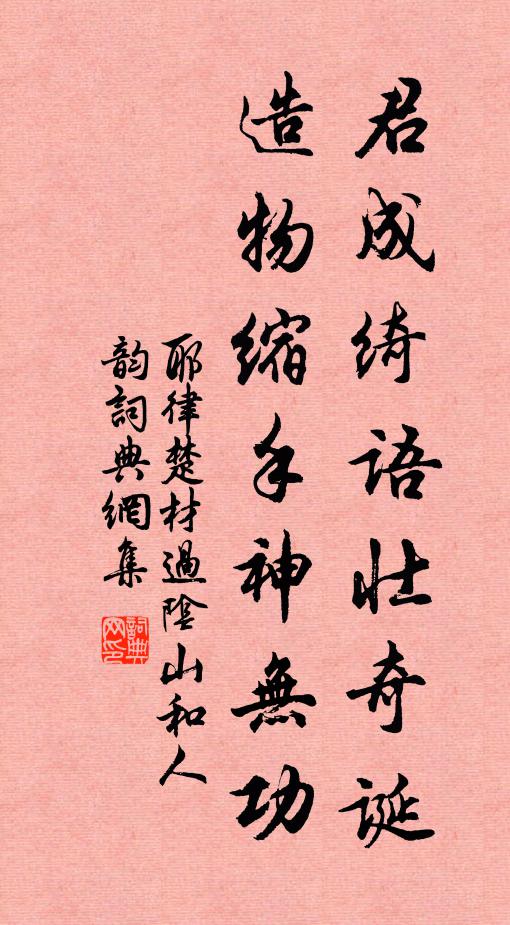 君成绮语壮奇诞
造物缩手神無功
耶律楚材過陰山和人
韵詞典網集
詞典网印